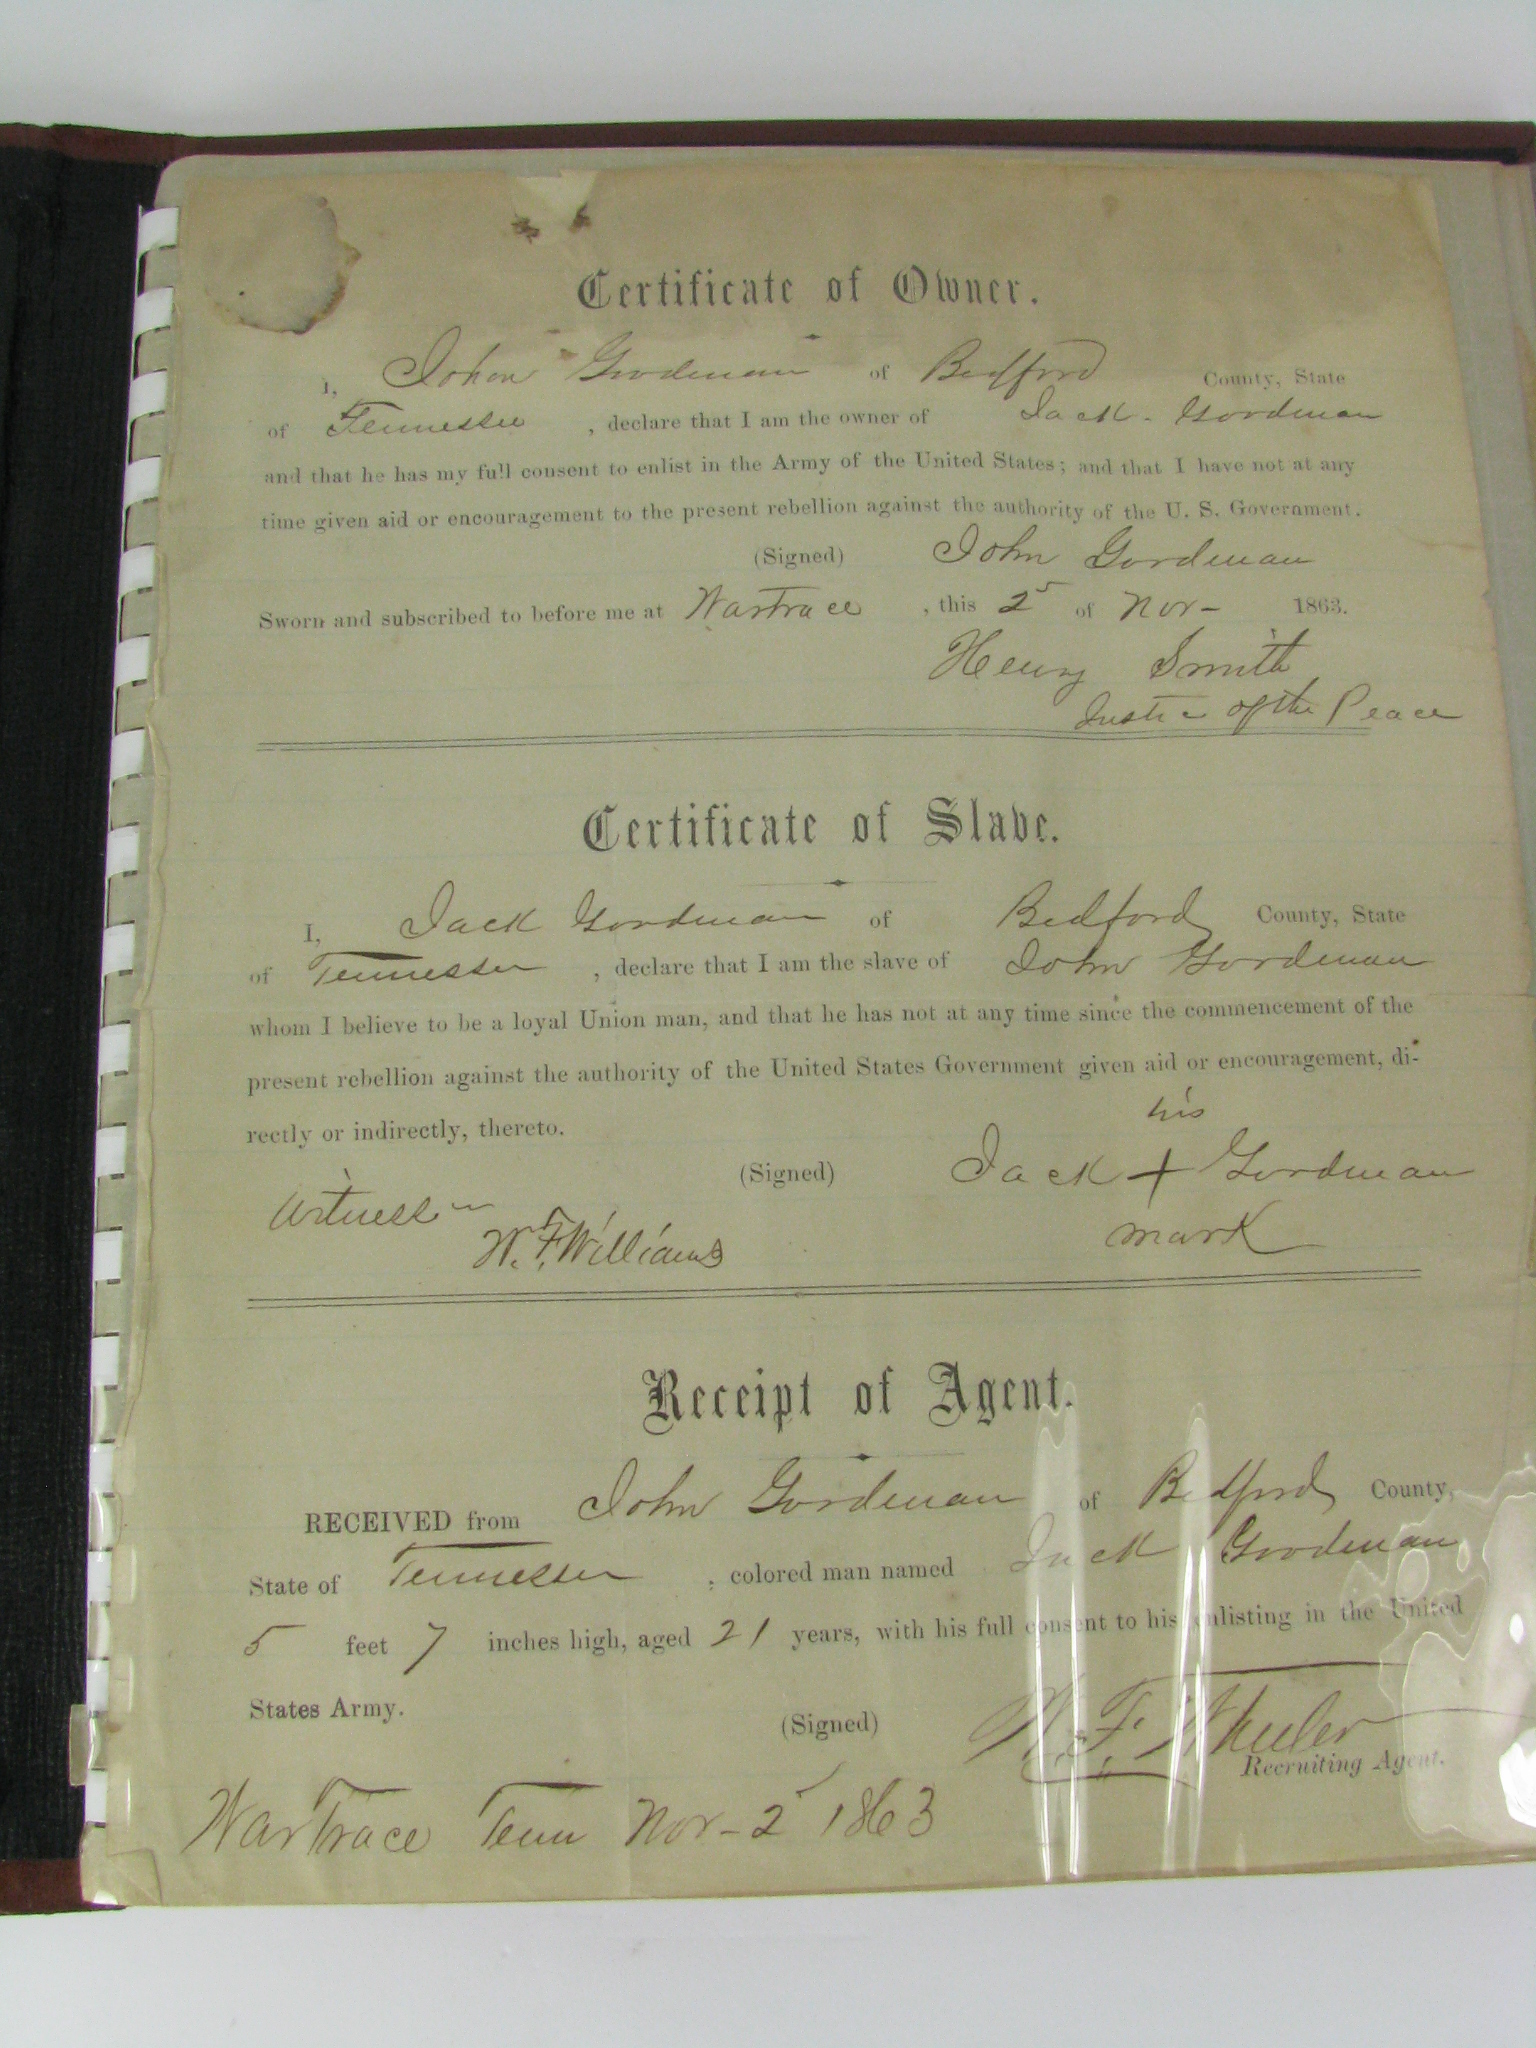 Certificate of Owner.
I, John Gordman of Bedford County, State
of Tennessee , declare that I am the owner of Jack Gordman
and that he has my full consent to enlist in the Army of the United States; and that I have not at any
time given aid or encouragement to the present rebellion against the authority of the U. S. Government.
(Signed) John Gordman
Sworn and subscribed to before me at Wartrace , this 2 of Nov- 1863.
Henry Smith
Justice of the Peace
Certificate of Slave.
I, Jack Gordman of Bedford County, State
of Tennessee , declare that I am the slave of John Gordman
whom I believe to be a loyal Union man, and that he has not at any time since the commencement of the
present rebellion against the authority of the United States Government given aid or encouragement, di-
rectly or indirectly, thereto.
his
(Signed) Jack + Gordman
mark
Witness
W. F. Williams
Receipt of Agent.
RECEIVED from John Gordman of Bedford County,
State of Tennessee , colored man named Jack Gordman
5 feet 7 inches high, aged 21 years, with his full consent to his enlisting in the United
States Army.
(Signed) W. F. Wheeler
Recruiting Agent.
WarTrace Tenn Nov- 2 1863